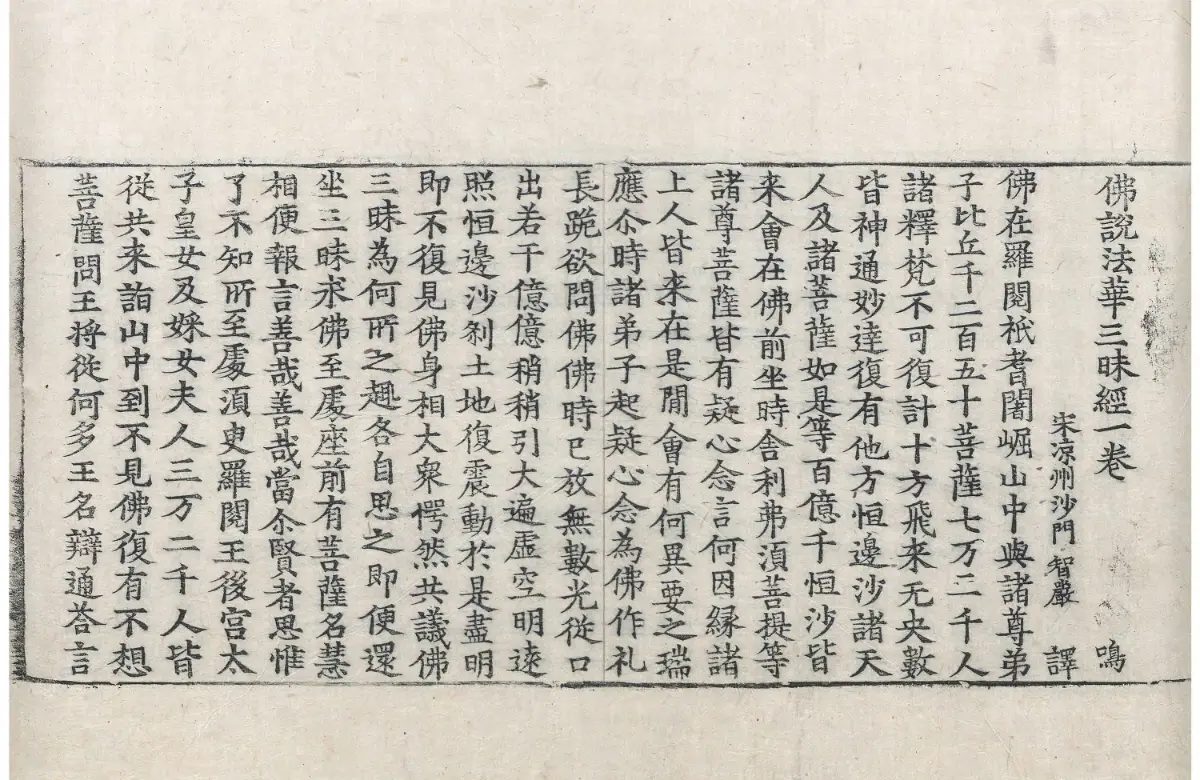 佛說法華三昧經一卷 鳴
宋涼州沙門智嚴 譯
佛在羅閱祇耆闍崛山中與諸尊弟
子比丘千二百五十菩薩七万二千人
諸釋梵不可復計十方飛来无央數
皆神通妙達復有他方恒邊沙諸天
人及諸菩薩如是等百億千恒沙皆
来會在佛前坐時舍利弗湏菩提等
諸尊菩薩皆有疑心念言何因緣諸
上人皆来在是閒會有何異要之瑞
應尒時諸弟子起疑心念為佛作礼
長跪欲問佛佛時已放無數光從口
出若干億億稍稍引大遍虛空明遠
照恒邊沙剎土地復震動於是盡明
即不復見佛身相大衆愕然共議佛
三昧為何所之趣各自思之即便還
坐三昧求佛至處座前有菩薩名慧
相便報言善哉善哉當尒賢者思惟
了不知所至處湏臾羅閱王後宮太
子皇女及婇女夫人三万二千人皆
從共来詣山中到不見佛復有不想
菩薩問王將從何多王名辯通荅言